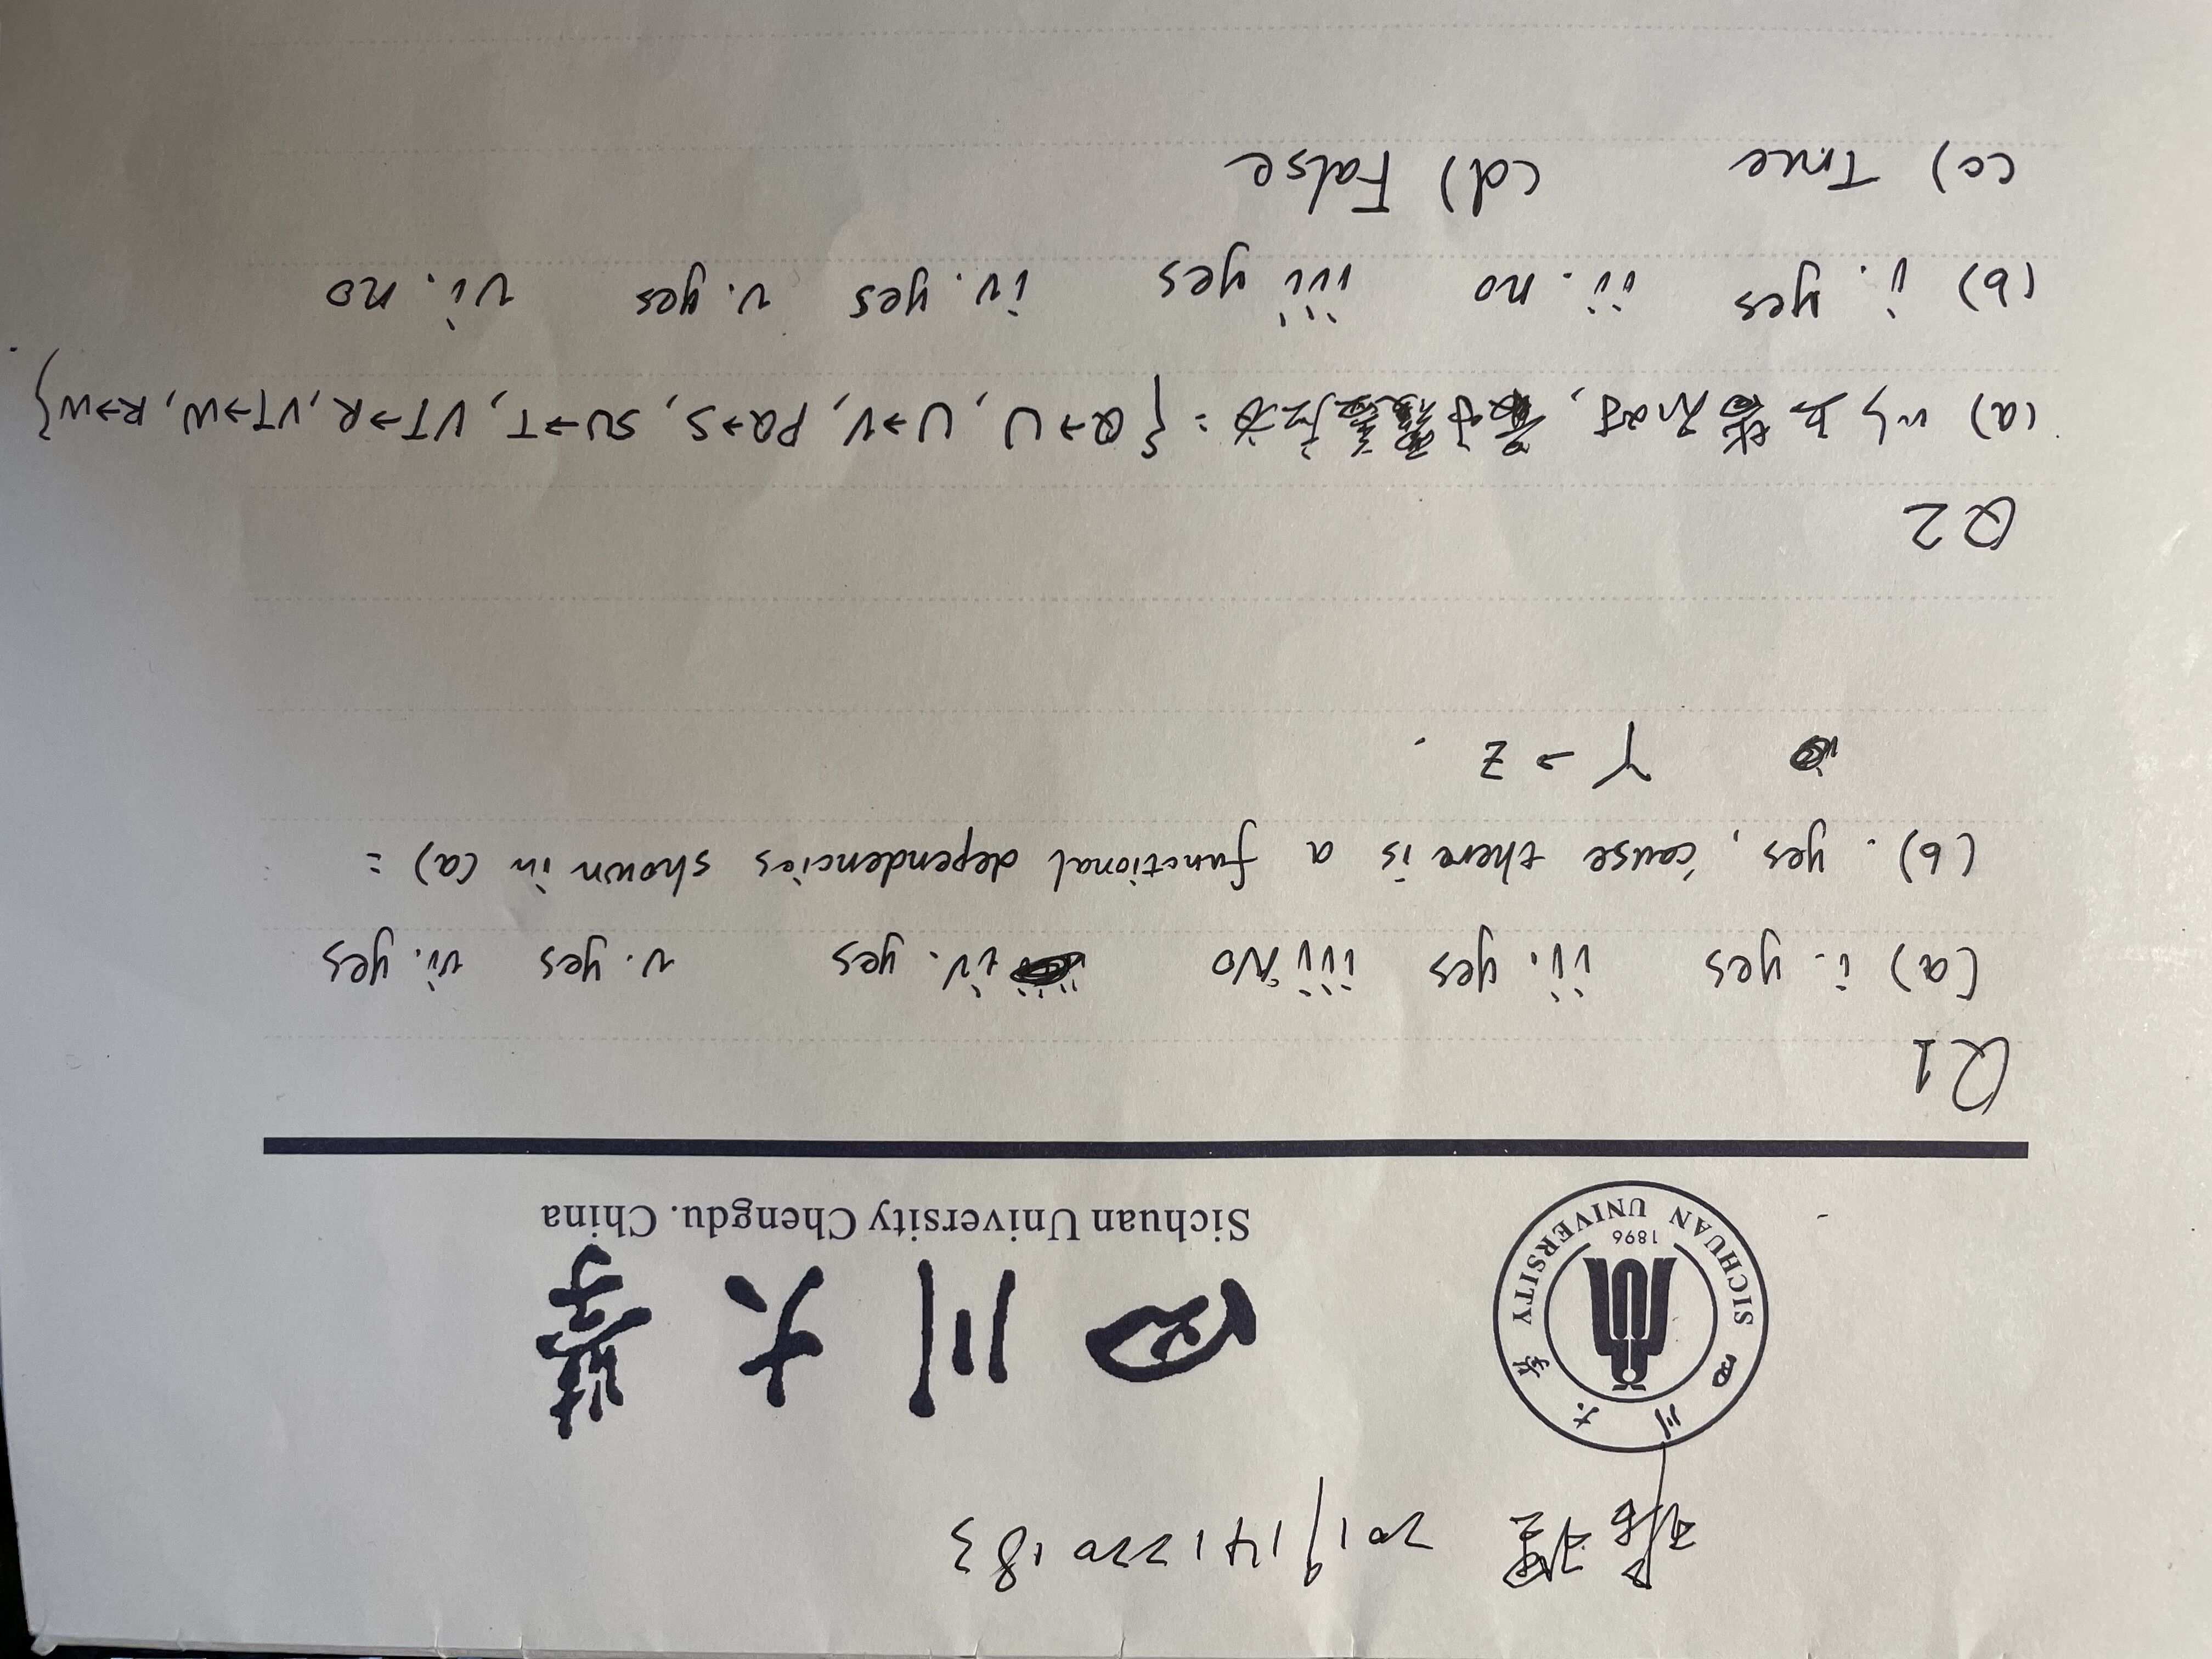 琚理 2019141220183
四川大学
SICHUAN UNIVERSITY
1896
四川大學
Sichuan University Chengdu. China
Q1
(a) i. yes ii. yes iii No iv. yes v. yes vi. yes
(b). yes, 'cause there is a functional dependencies shown in (a) :
Y → Z .
Q2
(a) 以上皆不对, 最小覆盖应为: { Q→U, U→V, PQ→S, SU→T, VT→R, VT→W, R→W}.
(b) i. yes ii. no iii yes iv. yes v. yes vi. no
(c) True (d) False